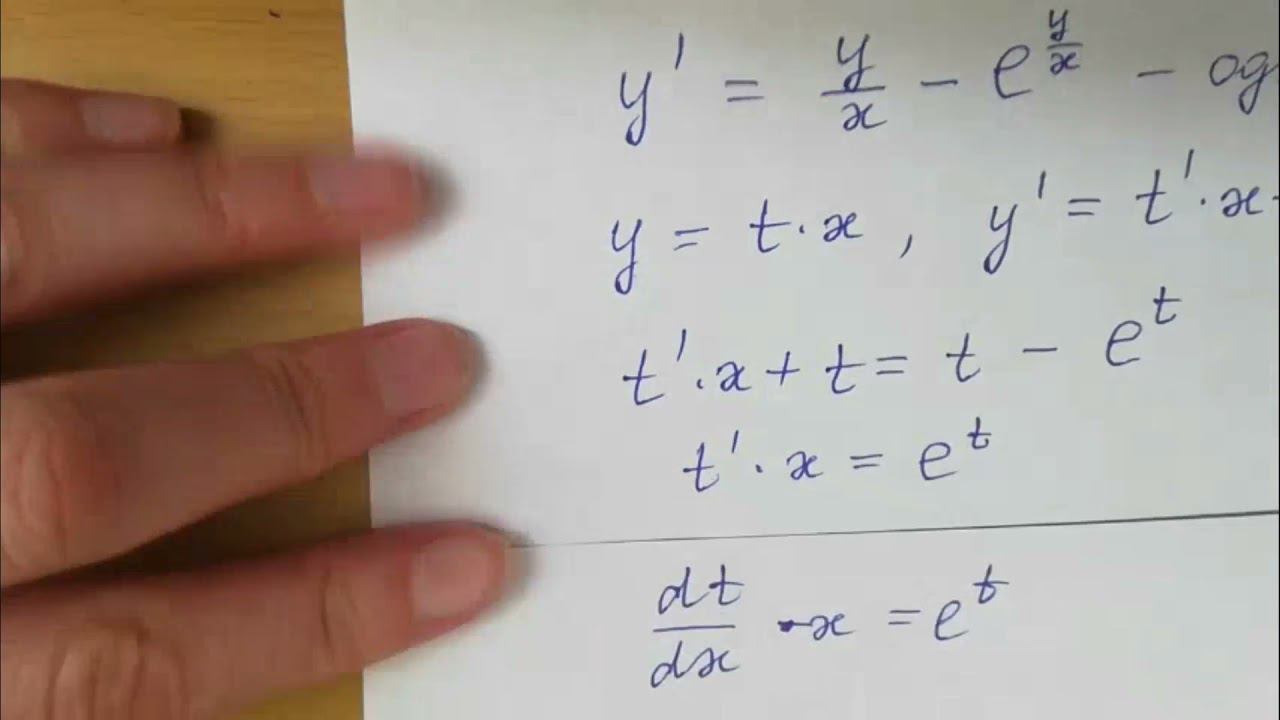 y' = y/x - e^(y/x) - og
y = t·x , y' = t'·x
t'·x + t = t - e^t
t'·x = e^t
dt/dx ·x = e^t